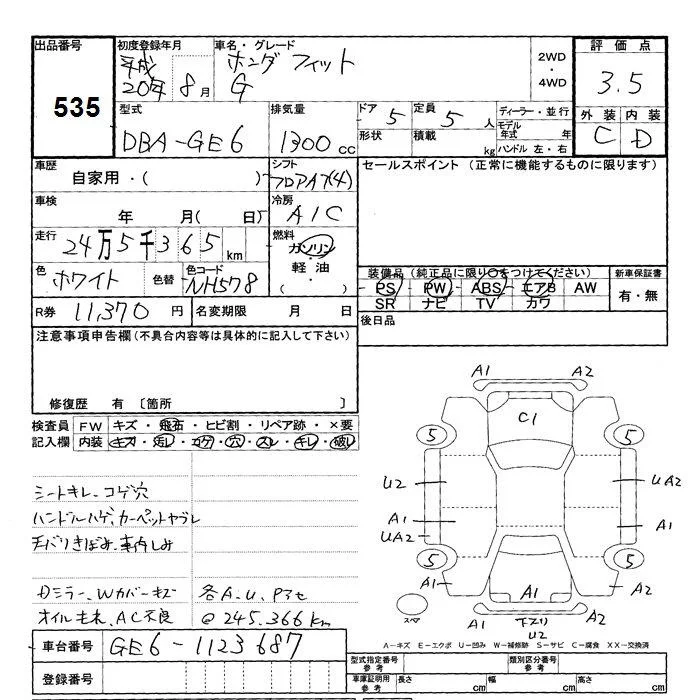 出品番号
535
初度登録年月
平成
20年 8月
車名・グレード
ホンダ フィット
G
2WD
・
4WD
評価点
3.5
外装 内装
C D
型式
DBA-GE6
排気量
1300cc
ドア 5
定員 5人
形状
積載 kg
ディーラー・並行
モデル年式 年
ハンドル 左・右
車歴
自家用・( )
シフト
フロアAT(4)
セールスポイント (正常に機能するものに限ります)
車検
年 月( 日)
冷房
AIC
走行
24万5千365km
燃料
ガソリン
・
軽油
( )
色
ホワイト
色替
色コード
NH578
装備品(純正品に限り○をつけてください)
PS・PW・ABS・エアB AW
SR ナビ TV カワ
新車保証書
有・無
R券 11,370円
名変期限 月 日
後日品
注意事項申告欄(不具合内容等は具体的に記入して下さい)
修復歴 有 〔箇所 〕
検査員記入欄
FW キズ・飛石・ヒビ割・リペア跡・×要
内装 キズ・汚レ・コゲ・穴・スレ・キレ・破レ
シートキレ、コゲ穴
ハンドルハゲ、カーペットヤブレ
天バリきばみ、車内しみ
Dミラー、Wカバーキズ
各A.U.Pアセ
オイルモレ、AC不良
@245.366km
A1 A2
C1
5 5
U2 UA2
A1 A1
UA2
5 5
A1 A1 A2
スペア
下スリ
U2
A-キズ E-エクボ U-凹み W-補修跡 S-サビ C-腐食 XX-交換済
車台番号 GE6-1123687
登録番号
型式指定番号
参考
類別区分番号
参考
車庫証明用
参考
長さ cm 幅 cm 高さ cm